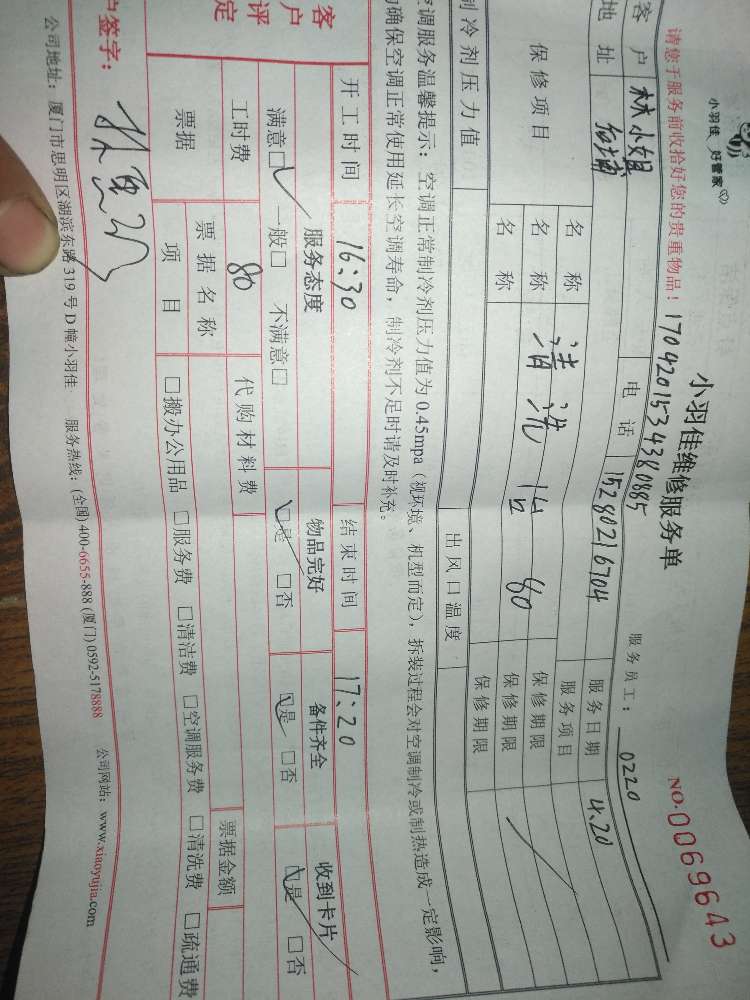 小羽佳 好管家
小羽佳维修服务单
NO.0069643
请您于服务前收拾好您的贵重物品！1704201534380885
服务员工：0220
客户 林小姐 电话 15280216704 服务日期 4.20
地址 服务项目
保修项目 名称 保修期限
名称 清洗 80 保修期限
名称 保修期限
制冷剂压力值 出风口温度
空调服务温馨提示：空调正常制冷剂压力值为0.45mpa（视环境、机型而定），拆装过程会对空调制冷或制热造成一定影响，
确保空调正常使用延长空调寿命，制冷剂不足时请及时补充。
开工时间 16:30 结束时间 17:20
客户评定 服务态度 物品完好 备件齐全 收到卡片
满意□ 一般□ 不满意□ □是 □否 □是 □否 □是 □否
工时费 80 代购材料费
票据 票据名称 票据金额
项目 □搬办公用品 □服务费 □清洁费 □空调服务费 □清洗费 □疏通费
户签字：
公司地址：厦门市思明区湖滨东路319号D幢小羽佳 服务热线：(全国) 400-6655-888 (厦门) 0592-5178888 公司网站：www.xiaoyujia.com